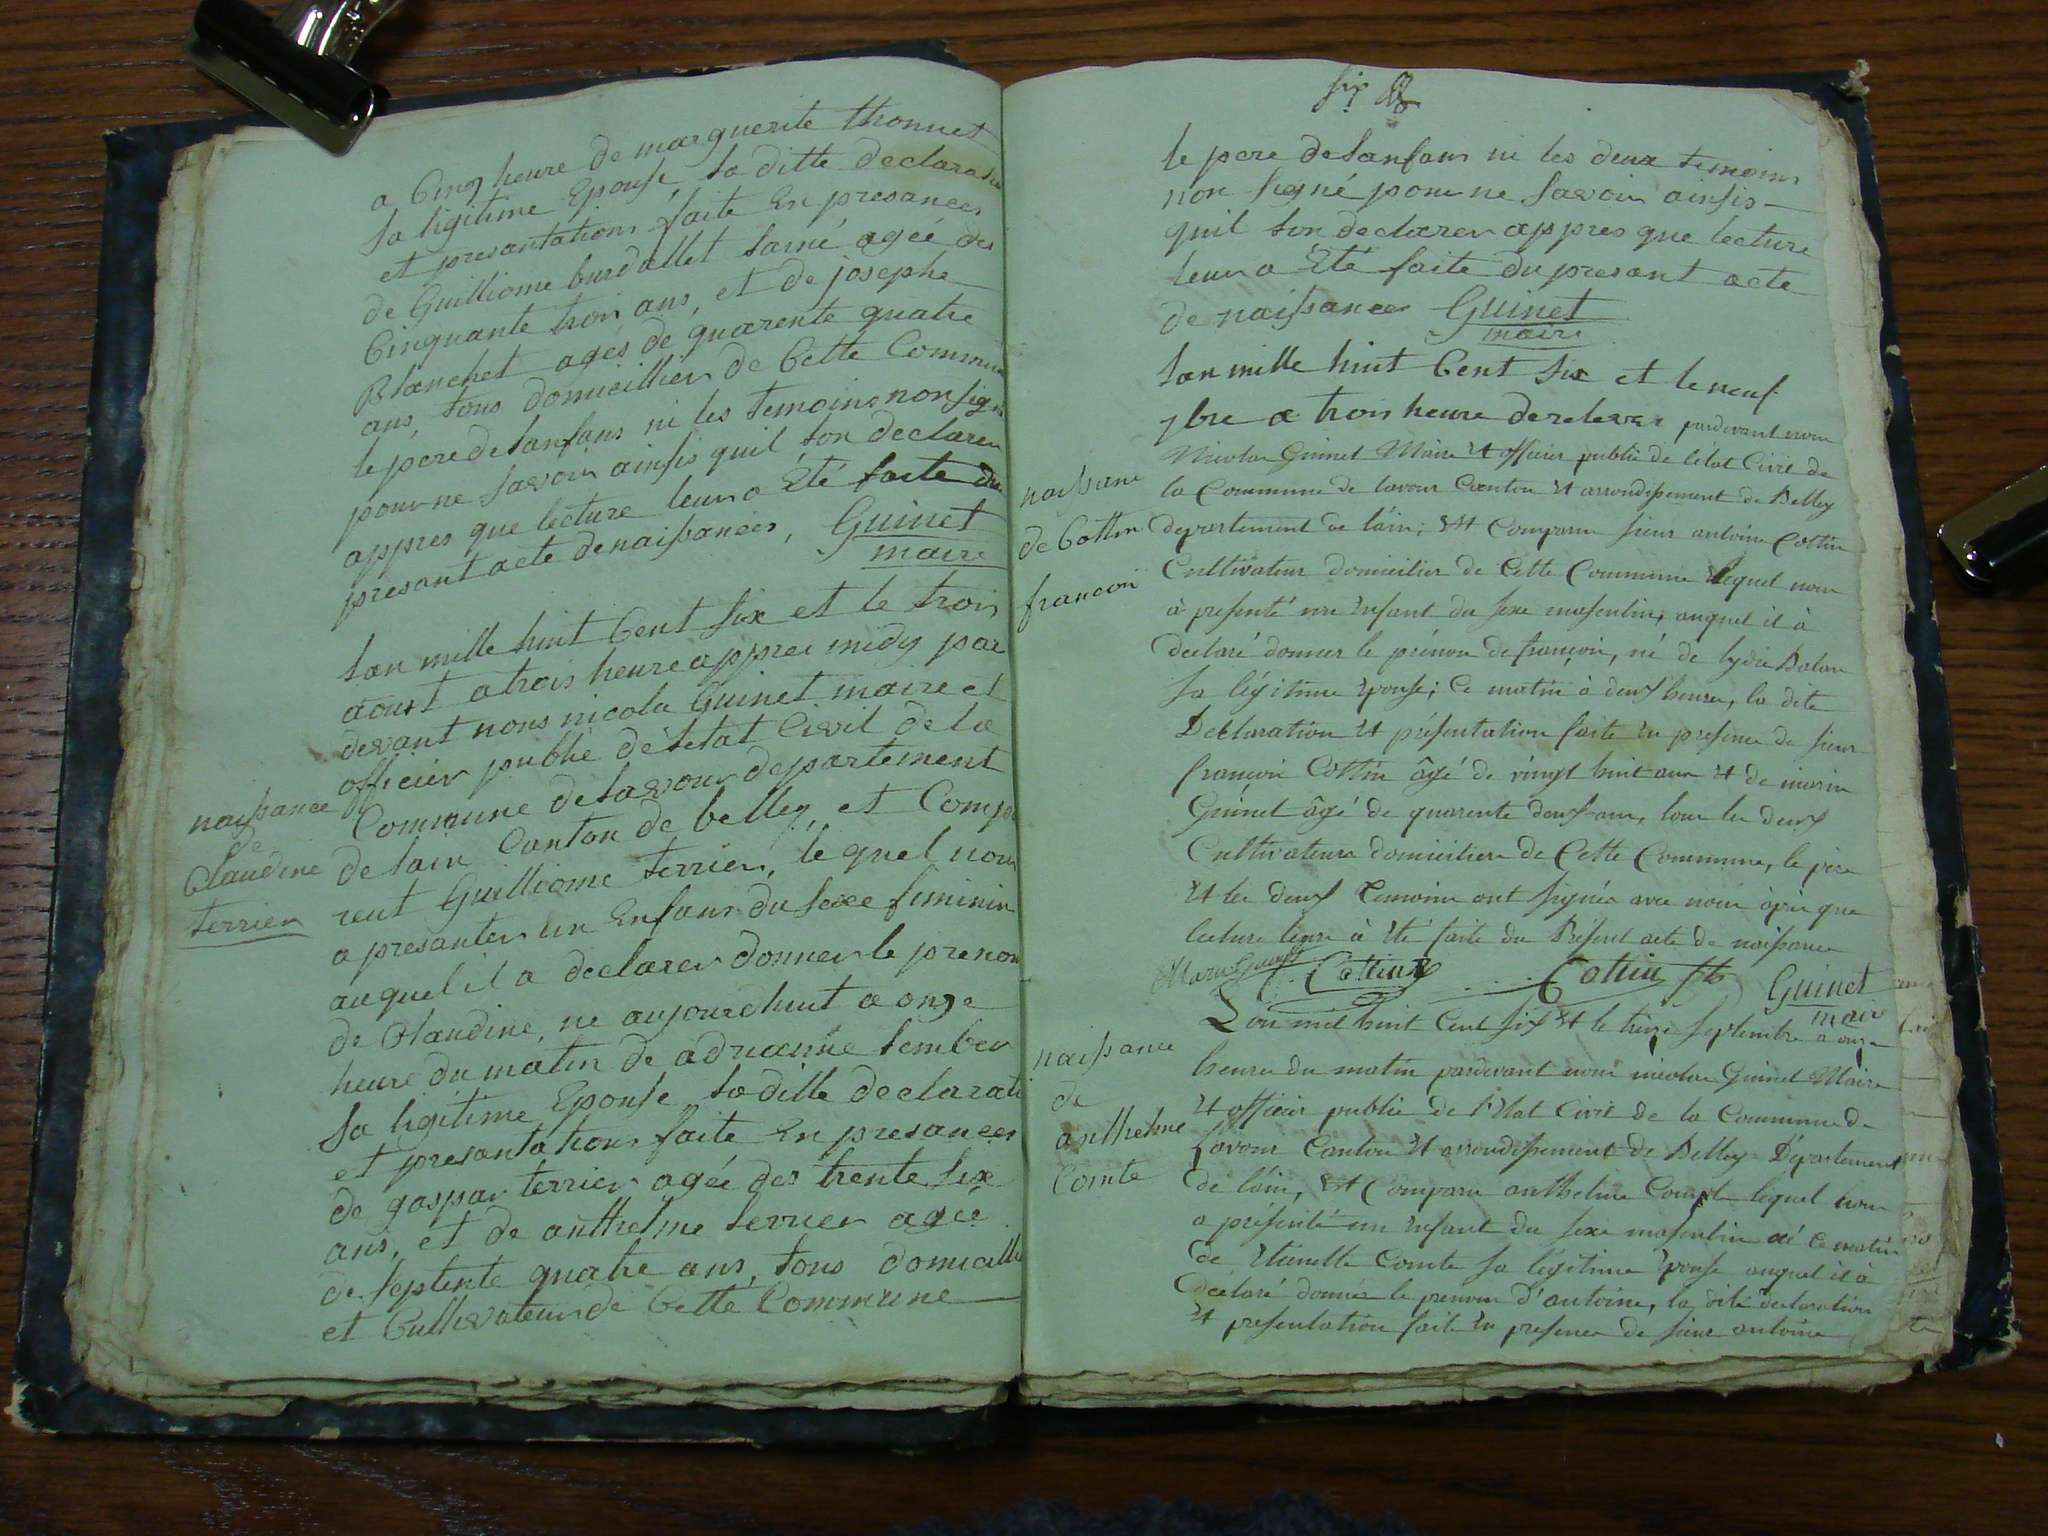 a Cinq heure de marguerite thonnet
sa ligitime Epouse, sa ditte declaratio
et presantations faite En presances
de Guilliome burdallet lainé ageé des
Cinquante trois ans, et de josephe
Blanchet agés de quarente quatre
ans, tous domicillier de Cette Commune
le pere de lanfans ni les temoins non signe
pour ne savoir ainsis quil son declarer
appres que lecture leur a Eté faite du
presant acte de naissances, Guinet
maire
lan mille huit Cent six et le trois
aoust a trois heure appres midy par
devant nous nicola Guinet maire et
officier publie de letat Civil de la
Commune de lavour departement
de lain Canton de belley, et Compa
rent Guilliome terrier, le quel nous
a presanter un Enfans du sexe feminin
auquel il a declarer donner le prenom
de Claudine, ne aujourdhuit a onze
heure du matin de adrianne sember
sa ligitime Epouse sa ditte declarati
et presantations faite En presances
de gaspar terrier ageé des trente six
ans, et de anthelme terrier ageé
de septente quatre ans, tous domicillie
et Cultivateur de Cette Commune
naissance
de
Claudine
terrier
six
le pere de lanfans ni les deux temoins
non signé pour ne savoir ainsis
quil son declarer appres que lecture
leur a Eté faite du presant acte
de naissances Guinet
maire
lan mille huit Cent six et le neuf
7bre a trois heure de relever pardevant nous
Nicolas Guinet Maire et officier public de l'état Civil de
la Commune de lavour Canton et arrondissement de Belley
departement de l'ain; Est Comparu sieur antoine Cottin
Cultivateur domicilier de Cette Commune lequel nous
à presenté un Enfant du sexe masculin, auquel il à
declaré donner le prénom de françois, né de lydie Balan
sa légitime Epouse; Ce matin à deux heures, la dite
Declaration et présentation faite En presence de sieur
françois Cottin âgé de vingt huit ans et de marin
Guinet âgé de quarente deux ans, tous les deux
Cultivateurs domiciliers de Cette Commune, le père
et les deux temoins ont signés avec nous après que
lecture leur à Eté faite du Présent acte de naissance
Marin Guinet Cottin Cottin fts Guinet
maire
L'an mil huit Cent six et le treize septembre a onze
heures du matin pardevant nous nicolas Guinet Maire
et officier public de l'Etat Civil de la Commune de
Lavour Canton et arrondissement de Belley Département
de l'ain, Est Comparu anthelme Comte lequel nous
a présenté un Enfant du sexe masculin né Ce matin
de Etienette Comte sa légitime Epouse auquel il à
déclaré donner le prenom d'antoine, la dite declaration
et presentation faite En presence de sieur antoine
naissance
de Cottin
francois
naissance
de
anthelme
Comte